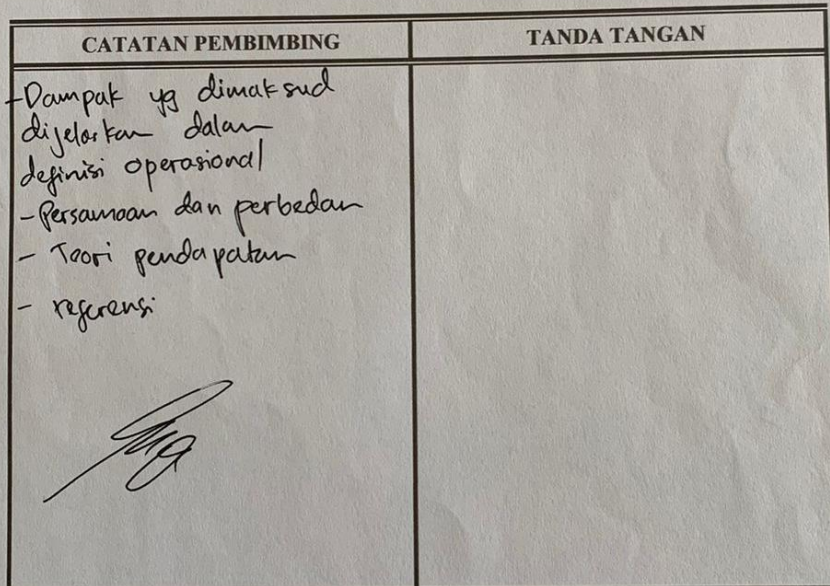 CATATAN PEMBIMBING
TANDA TANGAN
-Dampak yg dimaksud
dijelaskan dalam
definisi operasional
-Persamaan dan perbedan
- Teori pendapatan
- referensi